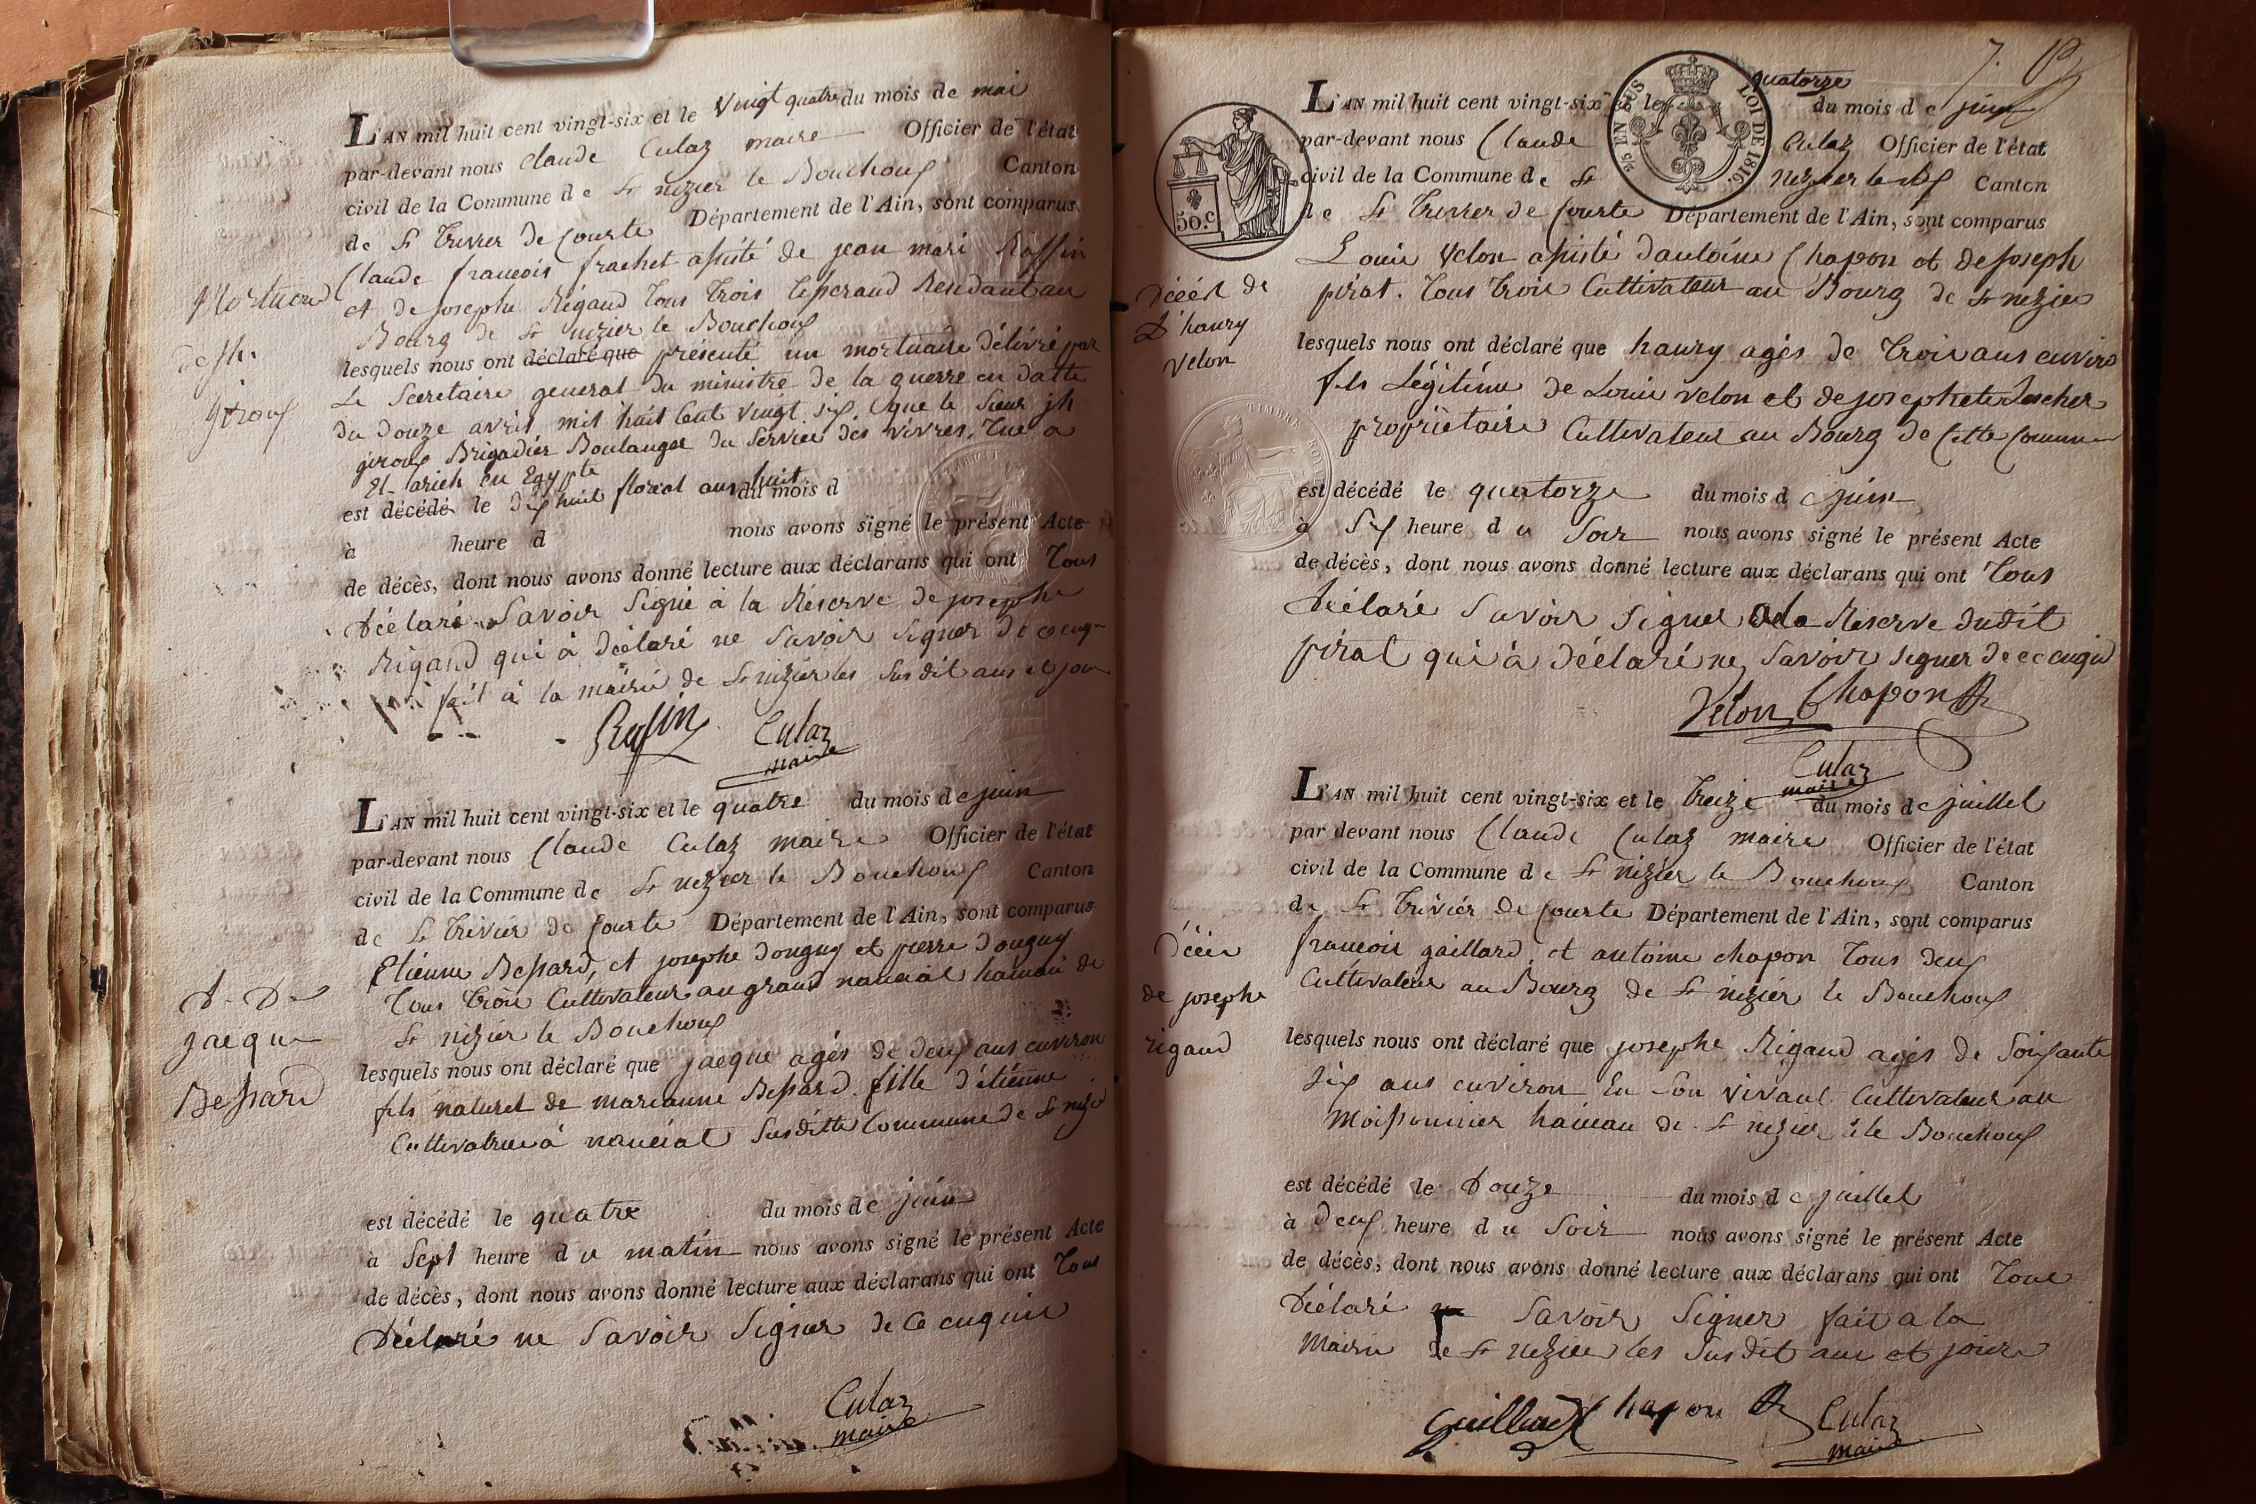 L'AN mil huit cent vingt-six et le vingt quatre du mois de mai
par-devant nous Claude Culaz maire Officier de l'état
civil de la Commune de St nizier le Bouchoux Canton
de St Trivier de Courte Département de l'Ain, sont comparus
Claude francois frachet assisté de jean mari Raffin
et de josephe Rigaud tous trois tisserand Residant au
Bourg de St nizier le Bouchoux
lesquels nous ont déclaré que présenté un mortuaire délivré par
Le Secretaire general du ministre de la guerre en datte
du douze avril mil huit Cent vingt six. que le sieur jh
giroux Brigadier Boulanger du Service des vivres, tué a
El-arich en Egypte
est décédé le dix huit floreal ans huit du mois d
à heure d nous avons signé le présent Acte
de décès, dont nous avons donné lecture aux déclarans qui ont Tous
Déclaré Savoir Signé à la Réserve de josephe
Rigaud qui à déclaré ne Savoir Signer de ce enq
fait à la mairie de St nizier les Susdit ans et jour
Mortuere
de jh.
giroux
Rafin Culaz
maire
L'AN mil huit cent vingt-six et le quatre du mois de juin
par-devant nous Claude Culaz maire Officier de l'état
civil de la Commune de St nizier le Bouchoux Canton
de St Trivier de Courte Département de l'Ain, sont comparus
Etienne Bessard, et josephe douguy et pierre douguy
Tous trois Cultivateur au grand nanciat hameau de
St nizier le Bouchoux
lesquels nous ont déclaré que jacque agés de deux ans environ
fils naturel de marianne Bessard fille d'étienne
Cultivatrice à nanciat Susditte Commune de St nizier
est décédé le quatre du mois de juin
à Sept heure du matin nous avons signé le présent Acte
de décès, dont nous avons donné lecture aux déclarans qui ont Tous
Déclaré ne Savoir Signer de ce enquis
D. De
jacque
Bessard
Culaz
maire
7.
2/5 EN SUS LOI DE 1816.
50.c
L'AN mil huit cent vingt-six et le quatorze du mois de juin
par-devant nous Claude Culaz Officier de l'état
civil de la Commune de St nizier le Canton
de St Trivier de Courte Département de l'Ain, sont comparus
Louis Velon assisté d'antoine Chapon et de joseph
pirat. Tous trois Cultivateur au Bourg de St nizier
lesquels nous ont déclaré que haury agés de trois ans environ
fils Légitime de Louis velon et de josephete
propriétaire Cultivateur au Bourg de Cette Commune
est décédé le quatorze du mois de juin
à Six heure du Soir nous avons signé le présent Acte
de décès, dont nous avons donné lecture aux déclarans qui ont Tous
Déclaré Savoir Signer a la Réserve dudit
pirat qui à déclaré ne Savoir signer de ce enquis
Décés de
D'haury
Velon
Velon Chapon
Culaz
maire
L'AN mil huit cent vingt-six et le treize du mois de juillet
par devant nous Claude Culaz maire Officier de l'état
civil de la Commune de St nizier le Bouchoux Canton
de St Trivier de Courte Département de l'Ain, sont comparus
francois gaillard, et antoine chapon Tous deux
Cultivateur au Bourg de St nizier le Bouchoux
lesquels nous ont déclaré que josephe Rigaud agés de Soixante
dix ans environ En Son vivant Cultivateur au
Moissonnier hameau de St nizier le Bouchoux
est décédé le Douze du mois de juillet
à deux heure du Soir nous avons signé le présent Acte
de décès, dont nous avons donné lecture aux déclarans qui ont Tous
Déclaré Savoir Signer fait a la
Mairie de St nizier les Susdit ans et jour
Décés
de josephe
rigaud
Guillard Chapon Culaz
maire